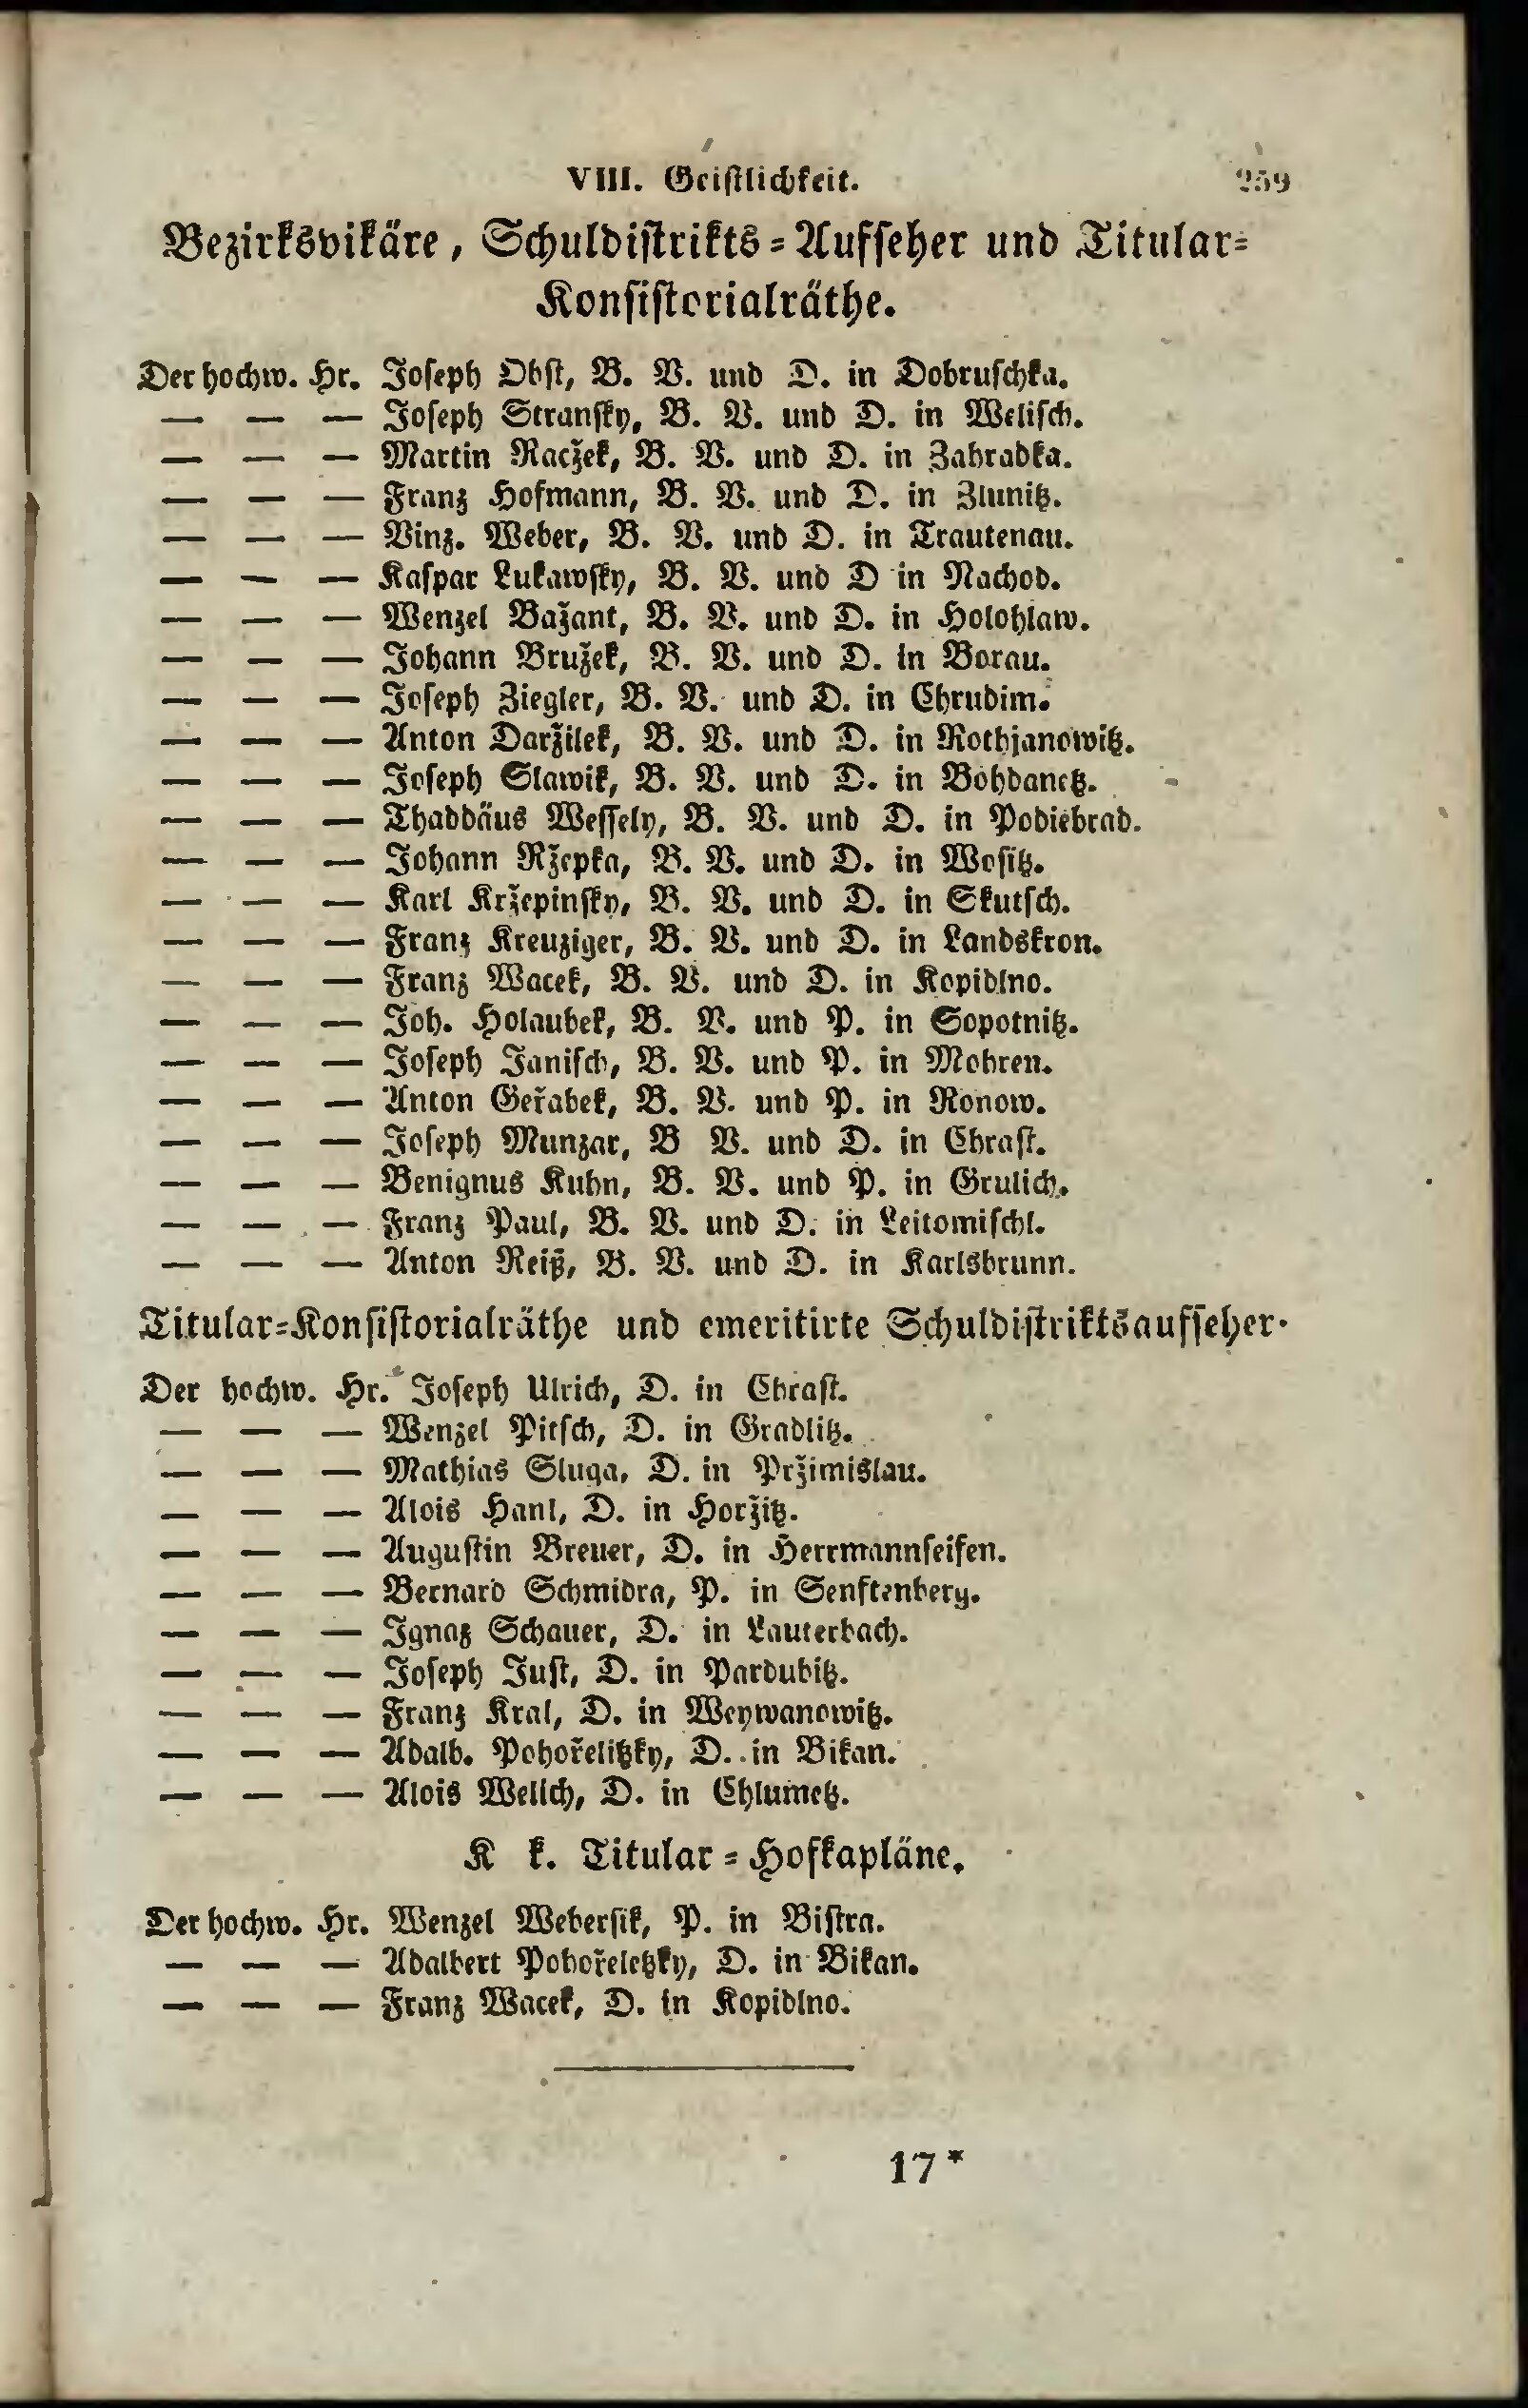 VIII. Geistlichkeit. 259
Bezirksvikäre, Schuldistrikts=Aufseher und Titular=
Konsistorialräthe.
Der hochw. Hr. Joseph Obst, B. V. und D. in Dobruschka.
— — — Joseph Stransky, B. V. und D. in Welisch.
— — — Martin Raczek, B. V. und D. in Zahradka.
— — — Franz Hofmann, B. V. und D. in Zlunitz.
— — — Vinz. Weber, B. V. und D. in Trautenau.
— — — Kaspar Lukawsky, B. V. und D in Nachod.
— — — Wenzel Bažant, B. V. und D. in Holohlaw.
— — — Johann Bružek, B. V. und D. in Borau.
— — — Joseph Ziegler, B. V. und D. in Chrudim.
— — — Anton Daržilek, B. V. und D. in Rothjanowitz.
— — — Joseph Slawik, B. V. und D. in Bohdanetz.
— — — Thaddäus Wessely, B. V. und D. in Podiebrad.
— — — Johann Ržepka, B. V. und D. in Wositz.
— — — Karl Kržepinsky, B. V. und D. in Skutsch.
— — — Franz Kreuziger, B. V. und D. in Landskron.
— — — Franz Wacek, B. V. und D. in Kopidlno.
— — — Joh. Holaubek, B. V. und P. in Sopotnitz.
— — — Joseph Janisch, B. V. und P. in Mohren.
— — — Anton Geřabek, B. V. und P. in Ronow.
— — — Joseph Munzar, B V. und D. in Chrast.
— — — Benignus Kuhn, B. V. und P. in Grulich.
— — — Franz Paul, B. V. und D. in Leitomischl.
— — — Anton Reiß, B. V. und D. in Karlsbrunn.
Titular=Konsistorialräthe und emeritirte Schuldistriktsaufseher.
Der hochw. Hr. Joseph Ulrich, D. in Chrast.
— — — Wenzel Pitsch, D. in Gradlitz.
— — — Mathias Sluga, D. in Pržimislau.
— — — Alois Hanl, D. in Horžitz.
— — — Augustin Breuer, D. in Herrmannseifen.
— — — Bernard Schmidra, P. in Senftenberg.
— — — Ignaz Schauer, D. in Lauterbach.
— — — Joseph Just, D. in Pardubitz.
— — — Franz Kral, D. in Weywanowitz.
— — — Adalb. Pohořelitzky, D. in Bikan.
— — — Alois Wellch, D. in Chlumetz.
K k. Titular=Hofkapläne.
Der hochw. Hr. Wenzel Webersik, P. in Bistra.
— — — Adalbert Pohořeletzky, D. in Bikan.
— — — Franz Wacek, D. in Kopidlno.
17*